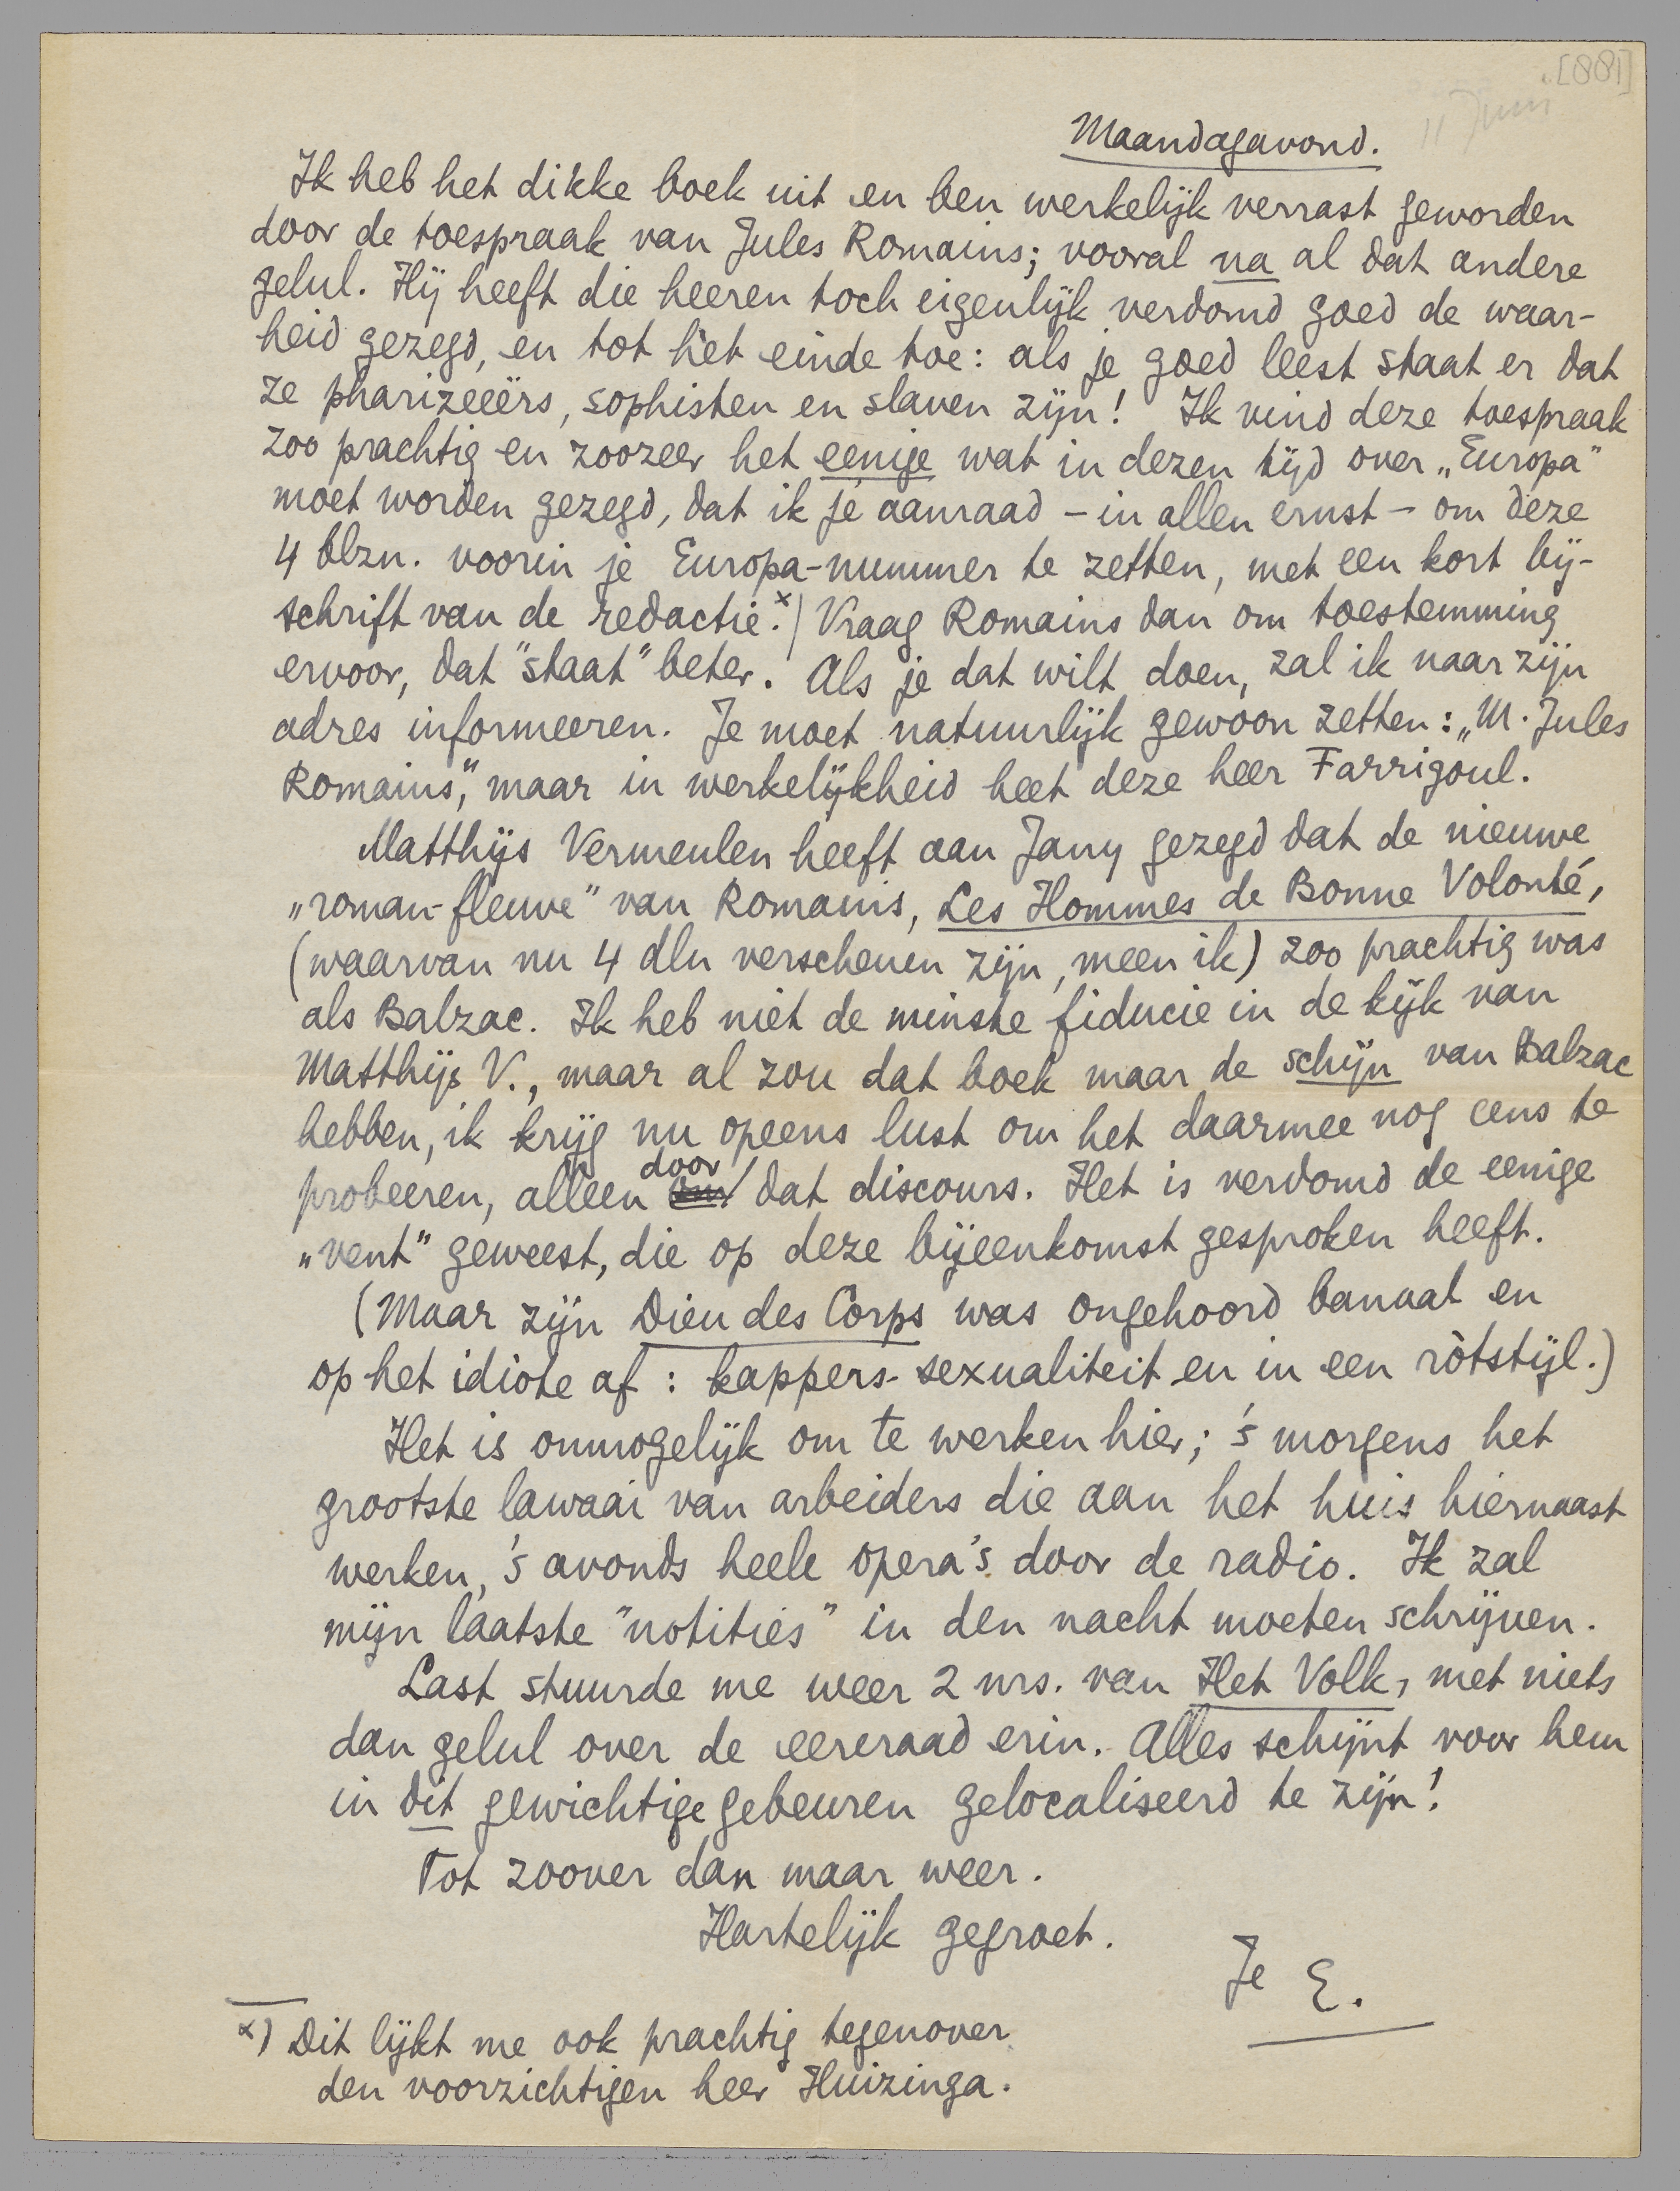 [881]
11 Juni
Maandagavond.
Ik heb het dikke boek uit en ben werkelijk verrast geworden
door de toespraak van Jules Romains; vooral na al dat andere
gelul. Hij heeft die heeren toch eigenlijk verdomd goed de waar-
heid gezegd, en tot het einde toe: als je goed leest staat er dat
ze pharizeeërs, sophisten en slaven zijn! Ik vind deze toespraak
zoo prachtig en zoozeer het eenige wat in dezen tijd over „Europa"
moet worden gezegd, dat ik je aanraad - in allen ernst - om deze
4 blzn. voorin je Europa-nummer te zetten, met een kort bij-
schrift van de redactie.x) Vraag Romains dan om toestemming
ervoor, dat "staat" beter. Als je dat wilt doen, zal ik naar zijn
adres informeeren. Je moet natuurlijk gewoon zetten: „M. Jules
Romains", maar in werkelijkheid heet deze heer Farrigoul.
Matthijs Vermeulen heeft aan Jany gezegd dat de nieuwe
„roman-fleuve" van Romains, Les Hommes de Bonne Volonté,
(waarvan nu 4 dln verschenen zijn, meen ik) zoo prachtig was
als Balzac. Ik heb niet de minste fiducie in de kijk van
Matthijs V., maar al zou dat boek maar de schijn van Balzac
hebben, ik krijg nu opeens lust om het daarmee nog eens te
probeeren, alleen door dat discours. Het is verdomd de eenige
„vent" geweest, die op deze bijeenkomst gesproken heeft.
(Maar zijn Dieu des Corps was ongehoord banaal en
op het idiote af: kappers-sexualiteit en in een ròtstijl.)
Het is onmogelijk om te werken hier; 's morgens het
grootste lawaai van arbeiders die aan het huis hiernaast
werken, 's avonds heele opera's door de radio. Ik zal
mijn laatste "notities" in den nacht moeten schrijven.
Last stuurde me weer 2 nrs. van Het Volk, met niets
dan gelul over de eereraad erin. Alles schijnt voor hem
in dit gewichtige gebeuren gelocaliseerd te zijn!
Tot zoover dan maar weer.
Hartelijk gegroet.
Je E.
x) Dit lijkt me ook prachtig tegenover
den voorzichtigen heer Huizinga.